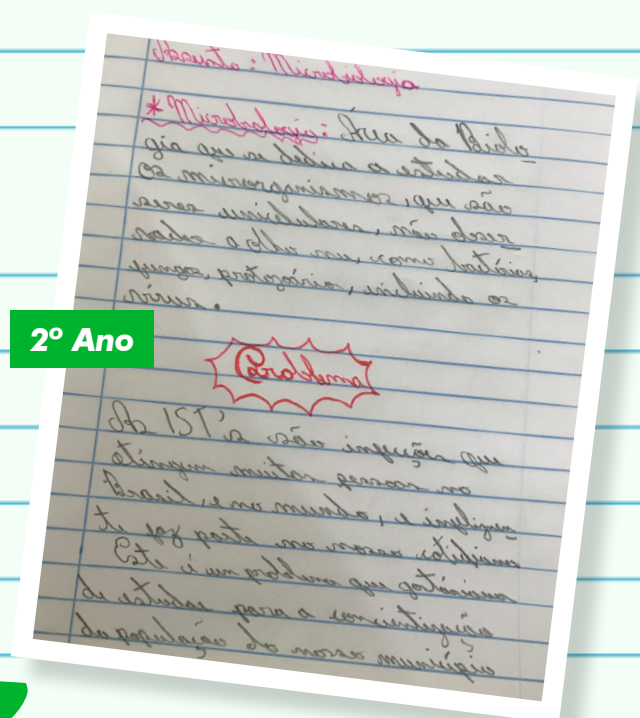 Assunto: Microbiologia
* Microbiologia: Área da Biolo
gia que se dedica a estudar
os microrganismos, que são
seres unicelulares, não obser
vados a olho nu, como bactérias,
fungos, protozoários, incluindo os
vírus.
2º Ano
Problema
As IST's são infecções que
atingem muitas pessoas no
Brasil, e no mundo, e infelizmen
te faz parte no nosso cotidiano
Este é um problema que gostáriamos
de estudar para a concientização
da população do nosso município